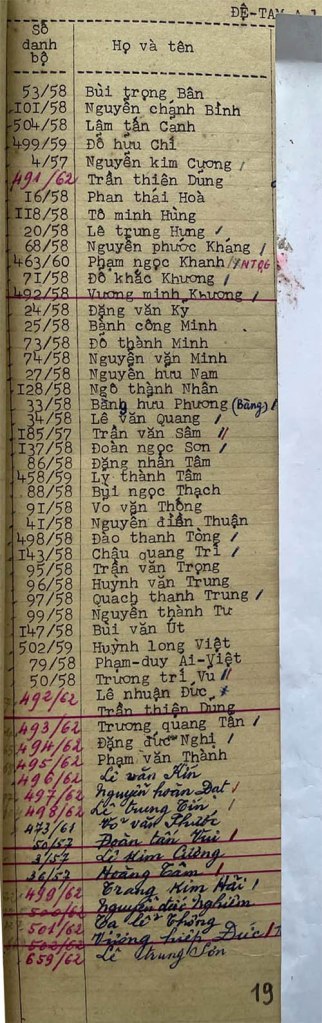 ĐỆ-TAM A 1
Số danh bộ | Họ và tên
53/58 Bùi trọng Bân
I0I/58 Nguyễn chánh Bình
504/58 Lâm tấn Cảnh
499/59 Đỗ hữu Chí
4/57 Nguyễn kim Cương /
491/62 Trần thiện Dũng
I6/58 Phan thái Hoà
II8/58 Tô minh Hùng
20/58 Lê trung Hưng /
68/58 Nguyễn phước Kháng /
463/60 Phạm ngọc Khanh // NTQG
7I/58 Đỗ khắc Khương /
492/58 Vương minh Khương /
24/58 Đặng văn Ky
25/58 Bành công Minh
73/58 Đỗ thành Minh
74/58 Nguyễn văn Minh
27/58 Nguyễn hưu Nam
I28/58 Ngô thành Nhân
33/58 Bàng hưu Phương (Bàng) /
34/58 Lê văn Quang /
I85/57 Trần văn Sâm //
I37/58 Đoàn ngọc Sơn /
86/58 Đặng nhân Tâm
458/59 Ly thành Tâm
88/58 Bùi ngọc Thạch
9I/58 Vo văn Thông
4I/58 Nguyễn điền Thuận
498/58 Đào thanh Tòng /
I43/58 Châu quang Trí /
95/58 Trần văn Trọng
96/58 Huỳnh văn Trung
97/58 Quach thanh Trung /
99/58 Nguyễn thành Tư
I47/58 Bùi văn Út
502/59 Huỳnh long Việt
79/58 Phạm-duy Ai-Việt
50/58 Trương trí Vu //
492/62 Lê nhuận Đức
Trần thiện Dung
493/62 Trương quang Tấn /
494/62 Đặng đức Nghị /
495/62 Phạm văn Thành
496/62 Lê văn Kin
497/62 Nguyễn hoàn Đạt /
498/62 Lê trung Tín /
473/61 Võ văn Phước
50/57 Đoàn tấn Vui /
3/57 Lê Kim Cương
36/53 Hoàng Tâm /
499/62 Trang Kim Hải /
500/62 Nguyễn đắc Nghiêm
501/62 Tạ lê Thông
502/62 Vương hiệp Đức /
659/62 Lê trung Sơn
19